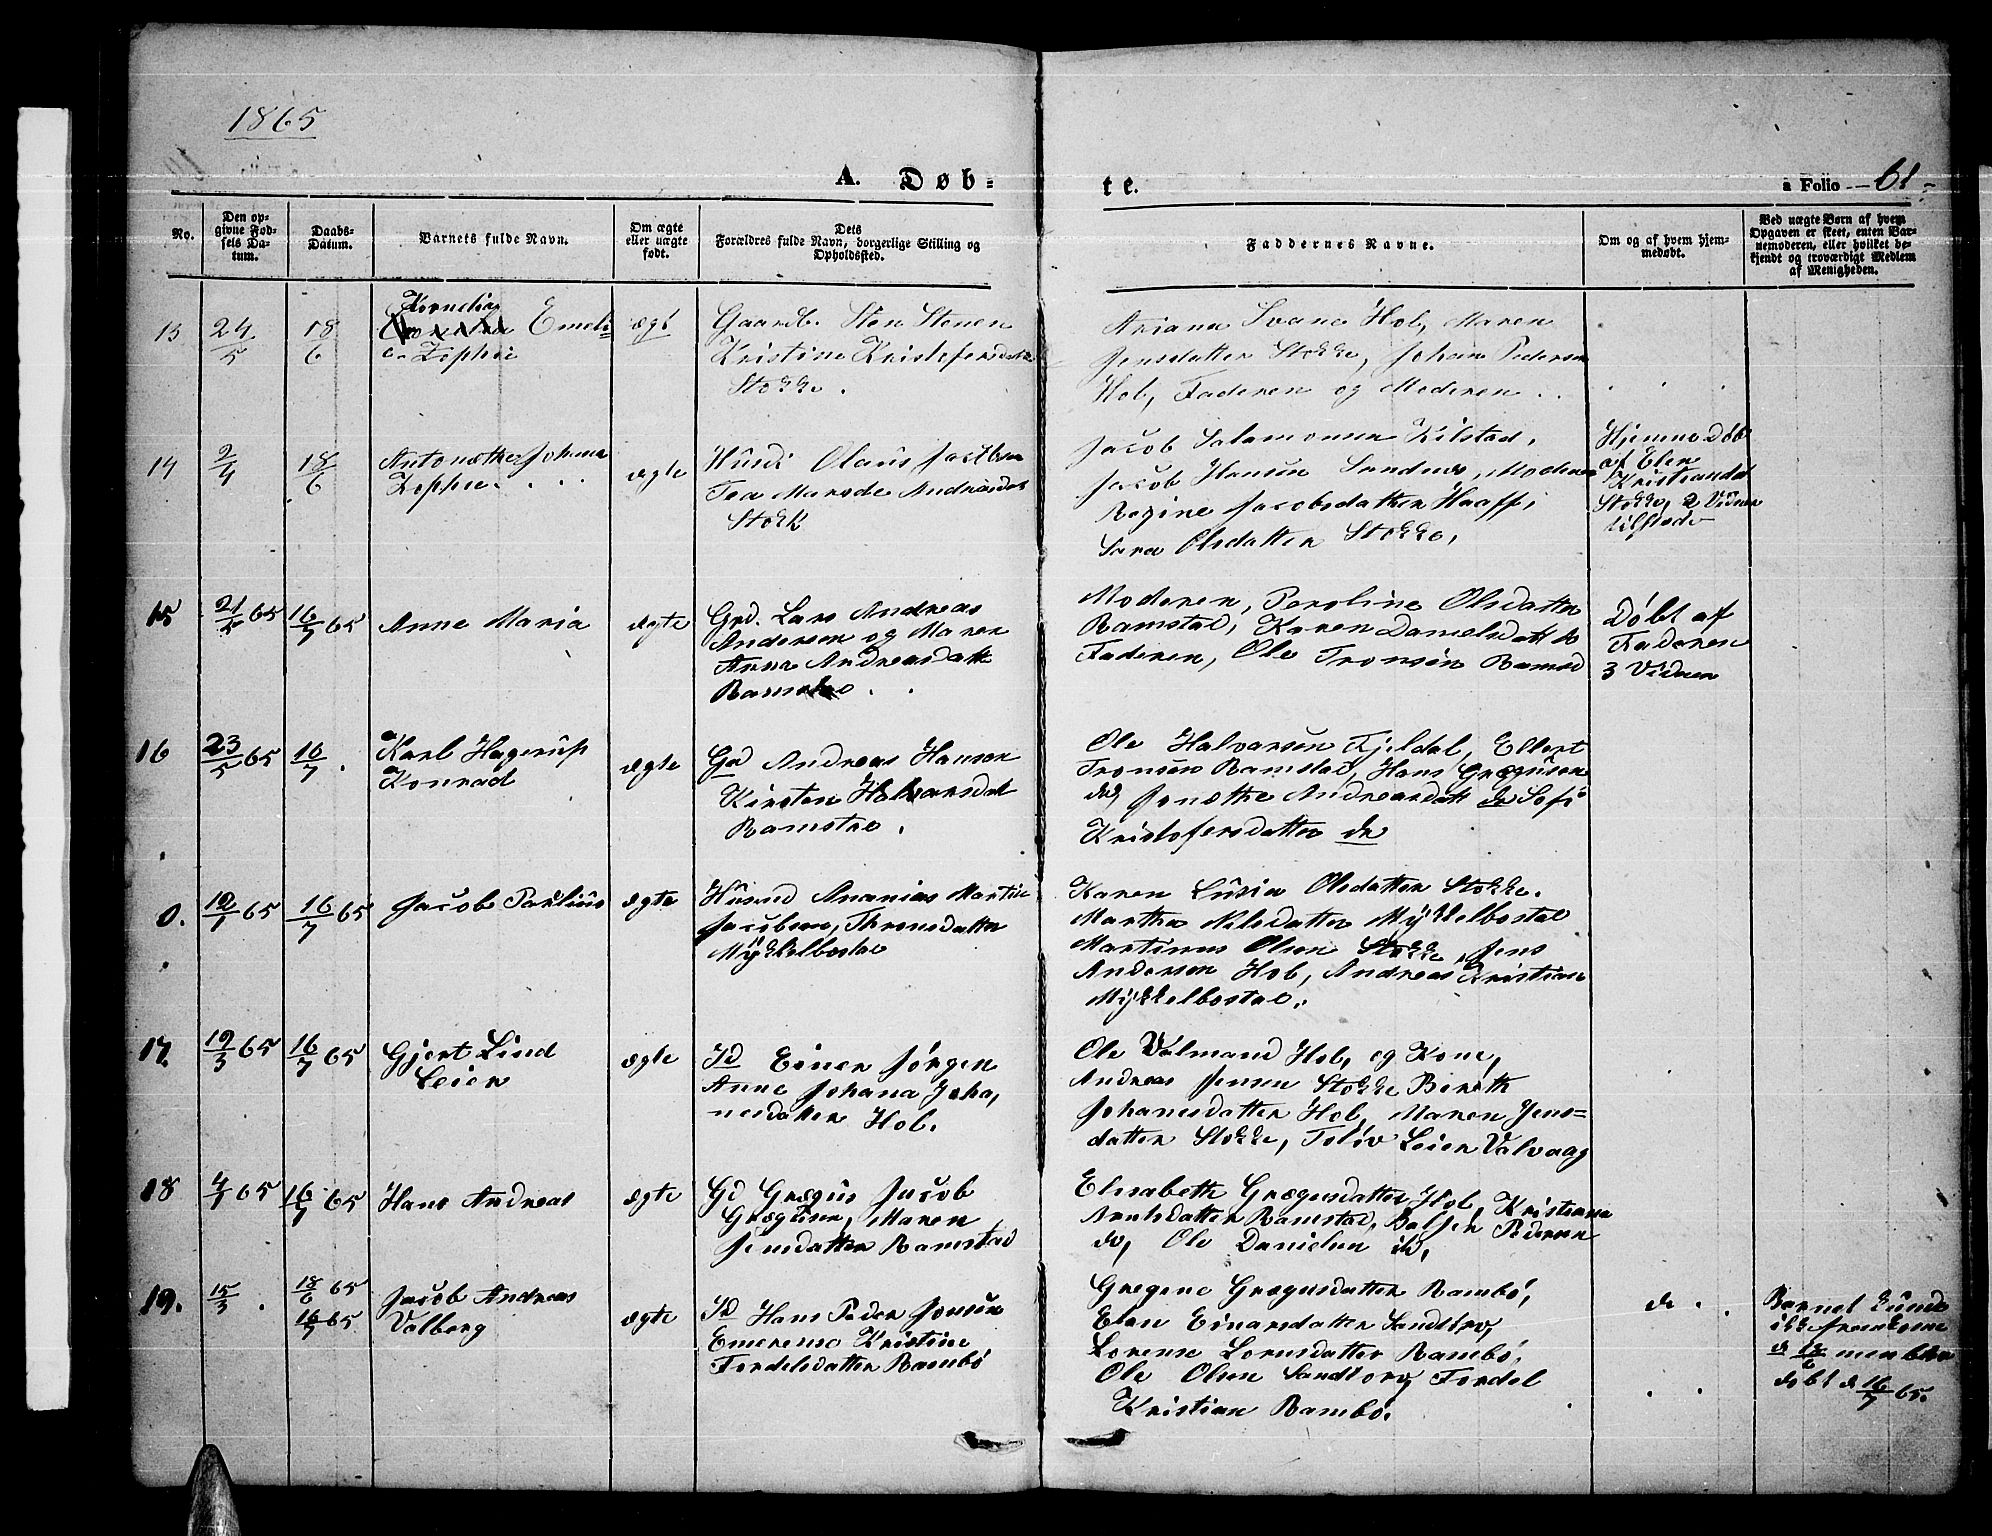 1865
A. Døb-
te.
a Folio 61.
No.
Den op-
givne Fød-
sels Da-
tum.
Daabs-
Datum.
Barnets fulde Navn.
Om ægte
eller uægte
født.
Dets
Forældres fulde Navn, borgerlige Stilling og
Opholdssted.
Faddernes Navne.
Om og af hvem hjem-
medøbt.
Ved uægte Børn af hvem
Opgaven er skeet, enten Bar-
nemoderen, eller hvilket be-
kjendt og troværdigt Medlem
af Menigheden.
13
24/5
18/6
Kornelia
Emeli
Zophie
ægt
Gaardb. Sten Stenen
Kristine Kristofersdatt
Stokke.
Ariana Svane Hol, Maren
Jensdatter Stokke, Johan Pedersen
Hol, Faderen og Moderen
14
2/4
18/6
Antonethe Johana
Zophie
ægte
Husm Olaus Jacobsen
Tea Marode Andreasdat
Stokk
Jacob Salamonsen Kilstad,
Jacob Hansen Sandnes, Moderen
Regine Jacobsdatter Haaff,
Sara Olsdatter Stokke,
Hjemmedøbt
af Elen
Kristiansdat
Stokke, 2 Vidner
tilstede
15
21/5 65
16/7 65
Anne Maria
ægte
Grd. Lars Andreas
Andersen og Maren
Anne Andreasdatt
Ramstad
Moderen, Peroline Olsdatter
Ramstad, Karen Danielsdatt do
Faderen, Ole Tronsen Ramsd
Døbt af
Faderen
3 Vidner
16
23/5 65
16/7.
Karl Hagerup
Konrad
ægte
Gd Andreas Hansen
Kirsten Halvarsdat
Ramstad.
Ole Halvarsen Fjeldal, Ellert
Tronsen Ramstad, Hans Grægusen
do, Jonetha Andreasdatt do Sofi
Kristofersdatter do
0.
12/7 65
16/7 65
Jacob Parlius
ægte
Husmd Ananias Martin
Jacobsen, Thronsdatter
Mykkelbostad
Karen Lusia Olsdatter Stokke.
Martha Nilsdatter Mykkelbostad
Martinus Olsen Stokke, Jens
Andersen Hol, Andreas Kristian
Mykkelbostad.
17
12/3 65
16/7 65
Gjert Lind
Leier
ægte
Id Einer Jørgen
Anne Johana Joha,
nesdatter Hol.
Ole Valmand Hol, og Kone,
Andreas Jensen Stokke Bereth
Johanesdatter Hol, Maren Jens=
datter Stokke, Toløv Leier Valvaag
18
4/7 65
16/7 65
Hans Andreas
ægte
Gd Grægus Jacob
Grægusen, Maren
Jensdatter Ramstad
Elisabeth Grægusdatter Hol, Kristiana
Arntsdatter Ramstad, Balser Pedersen
do, Ole Danielsen do,
19.
15/3.
18/6 65
16/7 65
Jacob Andreas
Valberg
ægte
Id Hans Peder Jonsen
Emerense Kristine
Fordelsdatter Rambø
Gregene Grægusdatter Rambø,
Elen Einarsdatter Sandtorv,
Lorense Lornsdatter Rambø,
Ole Olsen Sandtorv, Fordel
Kristian Rambø.
do
Barnet kunde
ikke fremkome
d 18/6 men blev
døbt d 16/7 65.